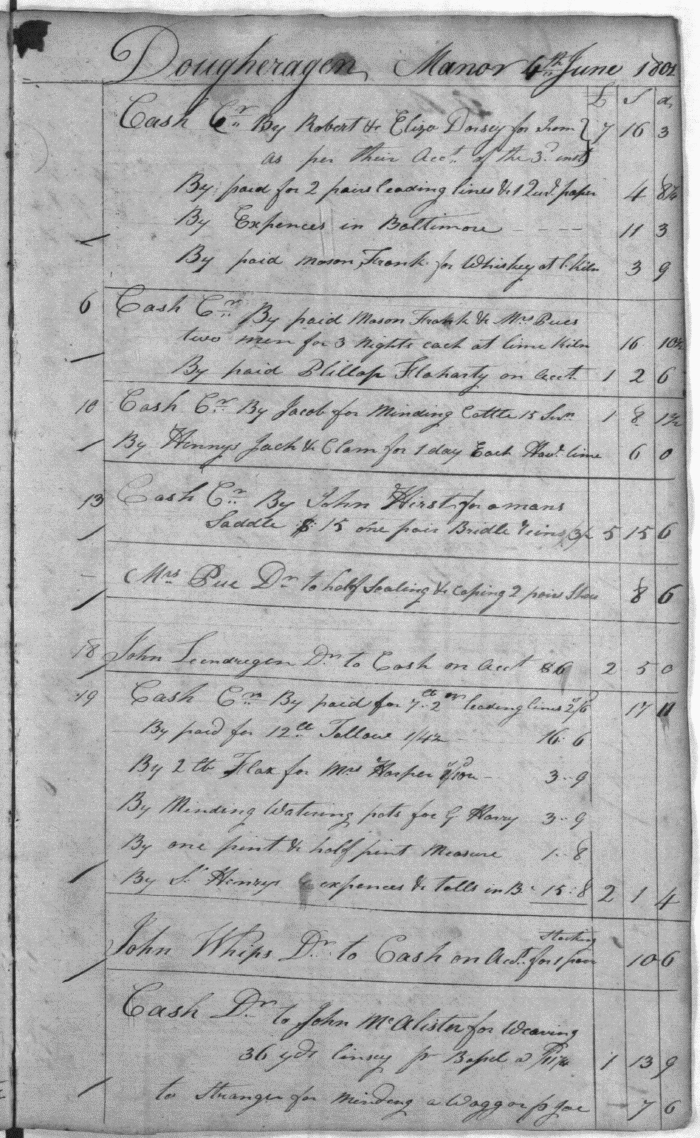 Dougheragen Manor 6th June 1802
£ S d
Cash Cr By Robert & Eliza Dorsey for Iron 7 16 3
as per their Acct. of the 3d inst
By paid for 2 pairs leading lines & 1 Quire paper 4
By Expences in Baltimore 11 3
By paid Mason Frank for Whiskey at L Kiln 3 9
6 Cash Cr By paid Mason Frank & Mrs Pues
two men for 3 Nights each at lime Kiln 16 10½
By paid Phillap Flaharty on Acct. 1 2 6
10 Cash Cr By Jacob for Minding Cattle 15 1 8 1½
By Hennys Jack & Clam for 1 day Each lime 6 0
13 Cash Cr By John Hirst for a mans
Saddle $15 one pair Bridle reins 5 15 6
Mrs Pue Dr to half Soaling & Caping 2 pair Shoes 8 6
18 John Lundregen Dr to Cash on Acct $6 2 5 0
19 Cash Cr By paid for leading lines 2/6 17 11
By paid for 12lb Tallow 1/4½ 16 6
By 2 lb Flax for Mrs Harper 3 9
By Minding Watering pots for G Harry 3 9
By one pint & half pint Measure 1 8
By Henrys expences & tolls in B 15 8 2 1 4
John Whips Dr to Cash on Acct. for 1 pair Stocking 10 6
Cash Dr to John McAlister for Weaving
36 yds linsey 1 13 9
to Stranger for Minding a Waggon p Joe 7 6